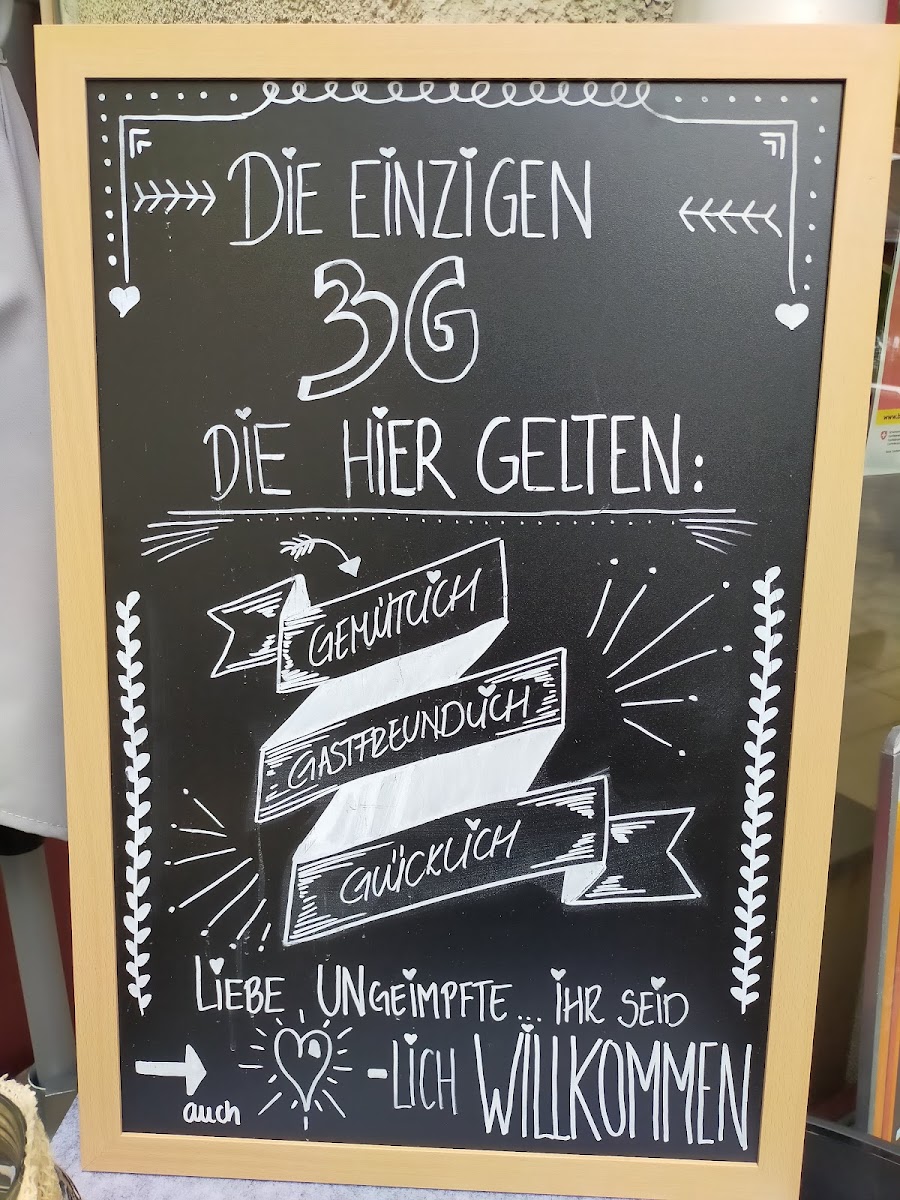 DIE EINZIGEN
3G
DIE HIER GELTEN:
GEMÜTLICH
GASTFREUNDLICH
GLÜCKLICH
LIEBE, UNGEIMPFTE... IHR SEID
auch -LICH WILLKOMMEN